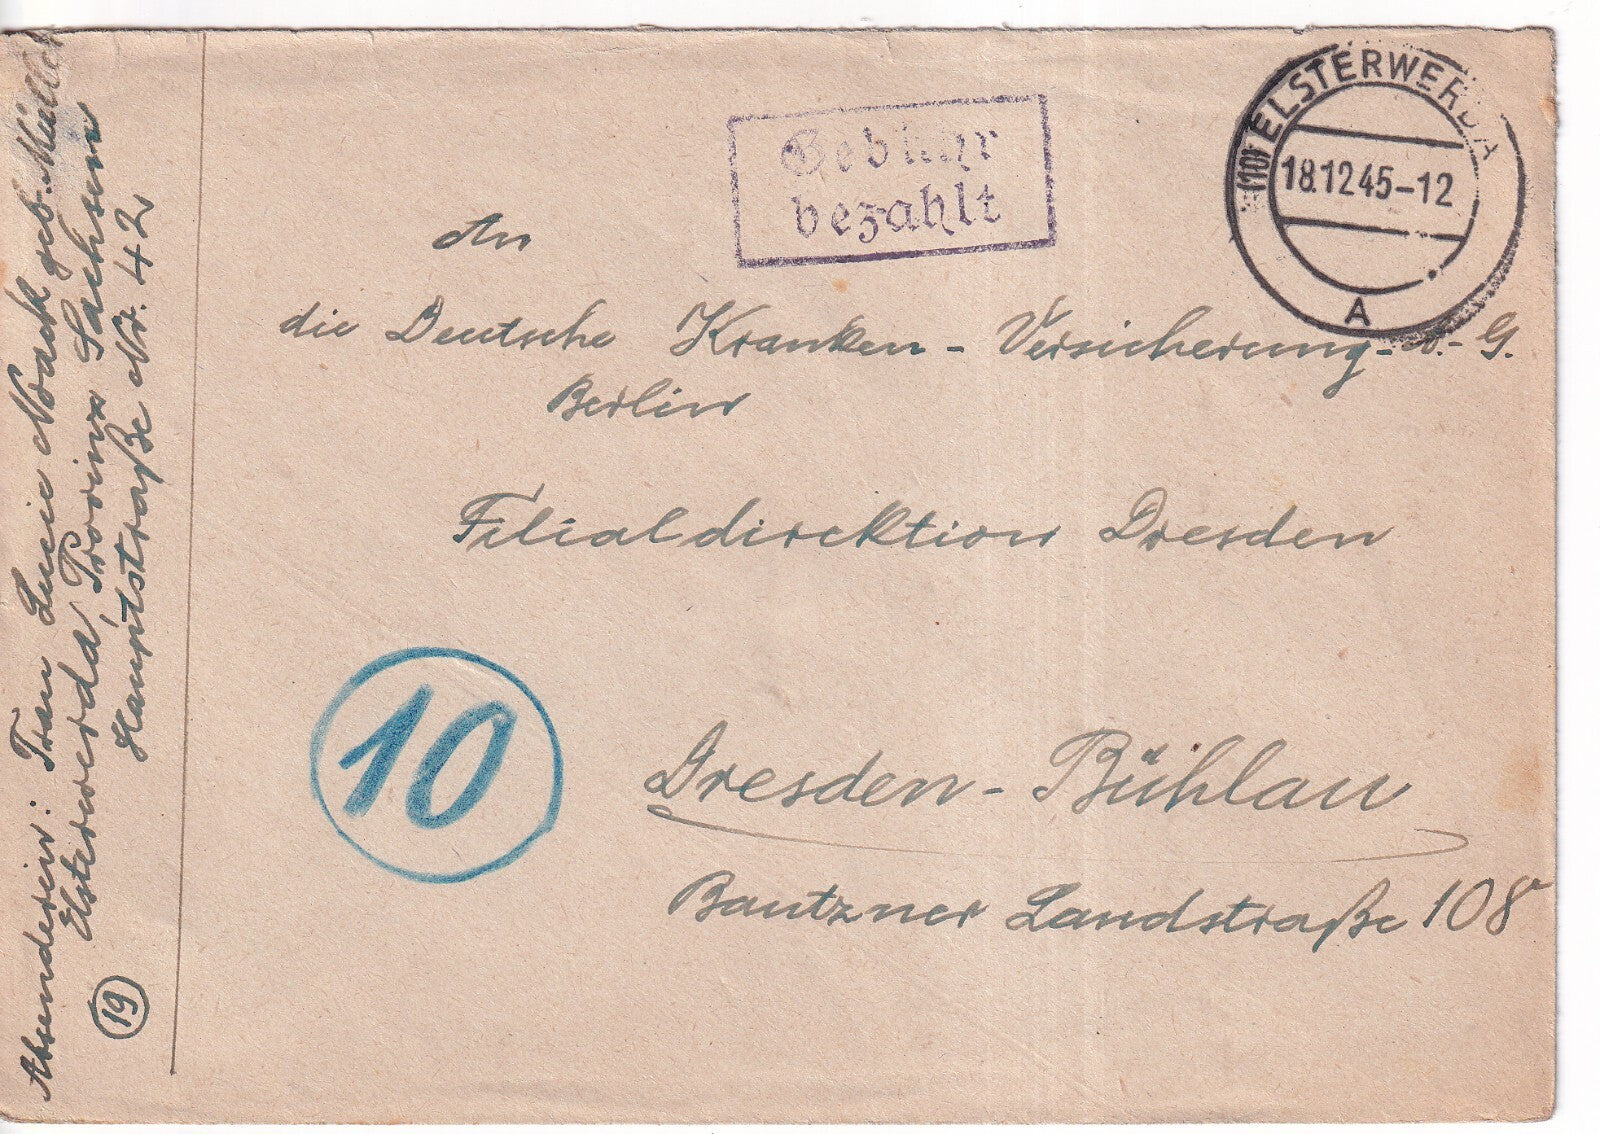 Gebühr
bezahlt
(10) ELSTERWERDA
18.12.45-12
A
An
die Deutsche Kranken-Versicherung-A.-G.
Berlin
Filialdirektion Dresden
10
Dresden-Bühlau
Bautzner Landstraße 108
Absenderin: Frau Lucie Noack geb. Müller
(19) Elsterwerda, Provinz Sachsen
Hauptstraße Nr. 42